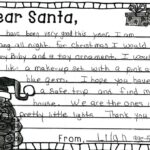 Dear Santa,
have been very good this year. I am
ng all night for Christmas I would
Toy Puppy and a toy ornament. I would
like a makeup set with a pink a
blue gem. I hope you have
a safe trip and find m
house. We are the ones i
pretty little lights. Thank you.
From,